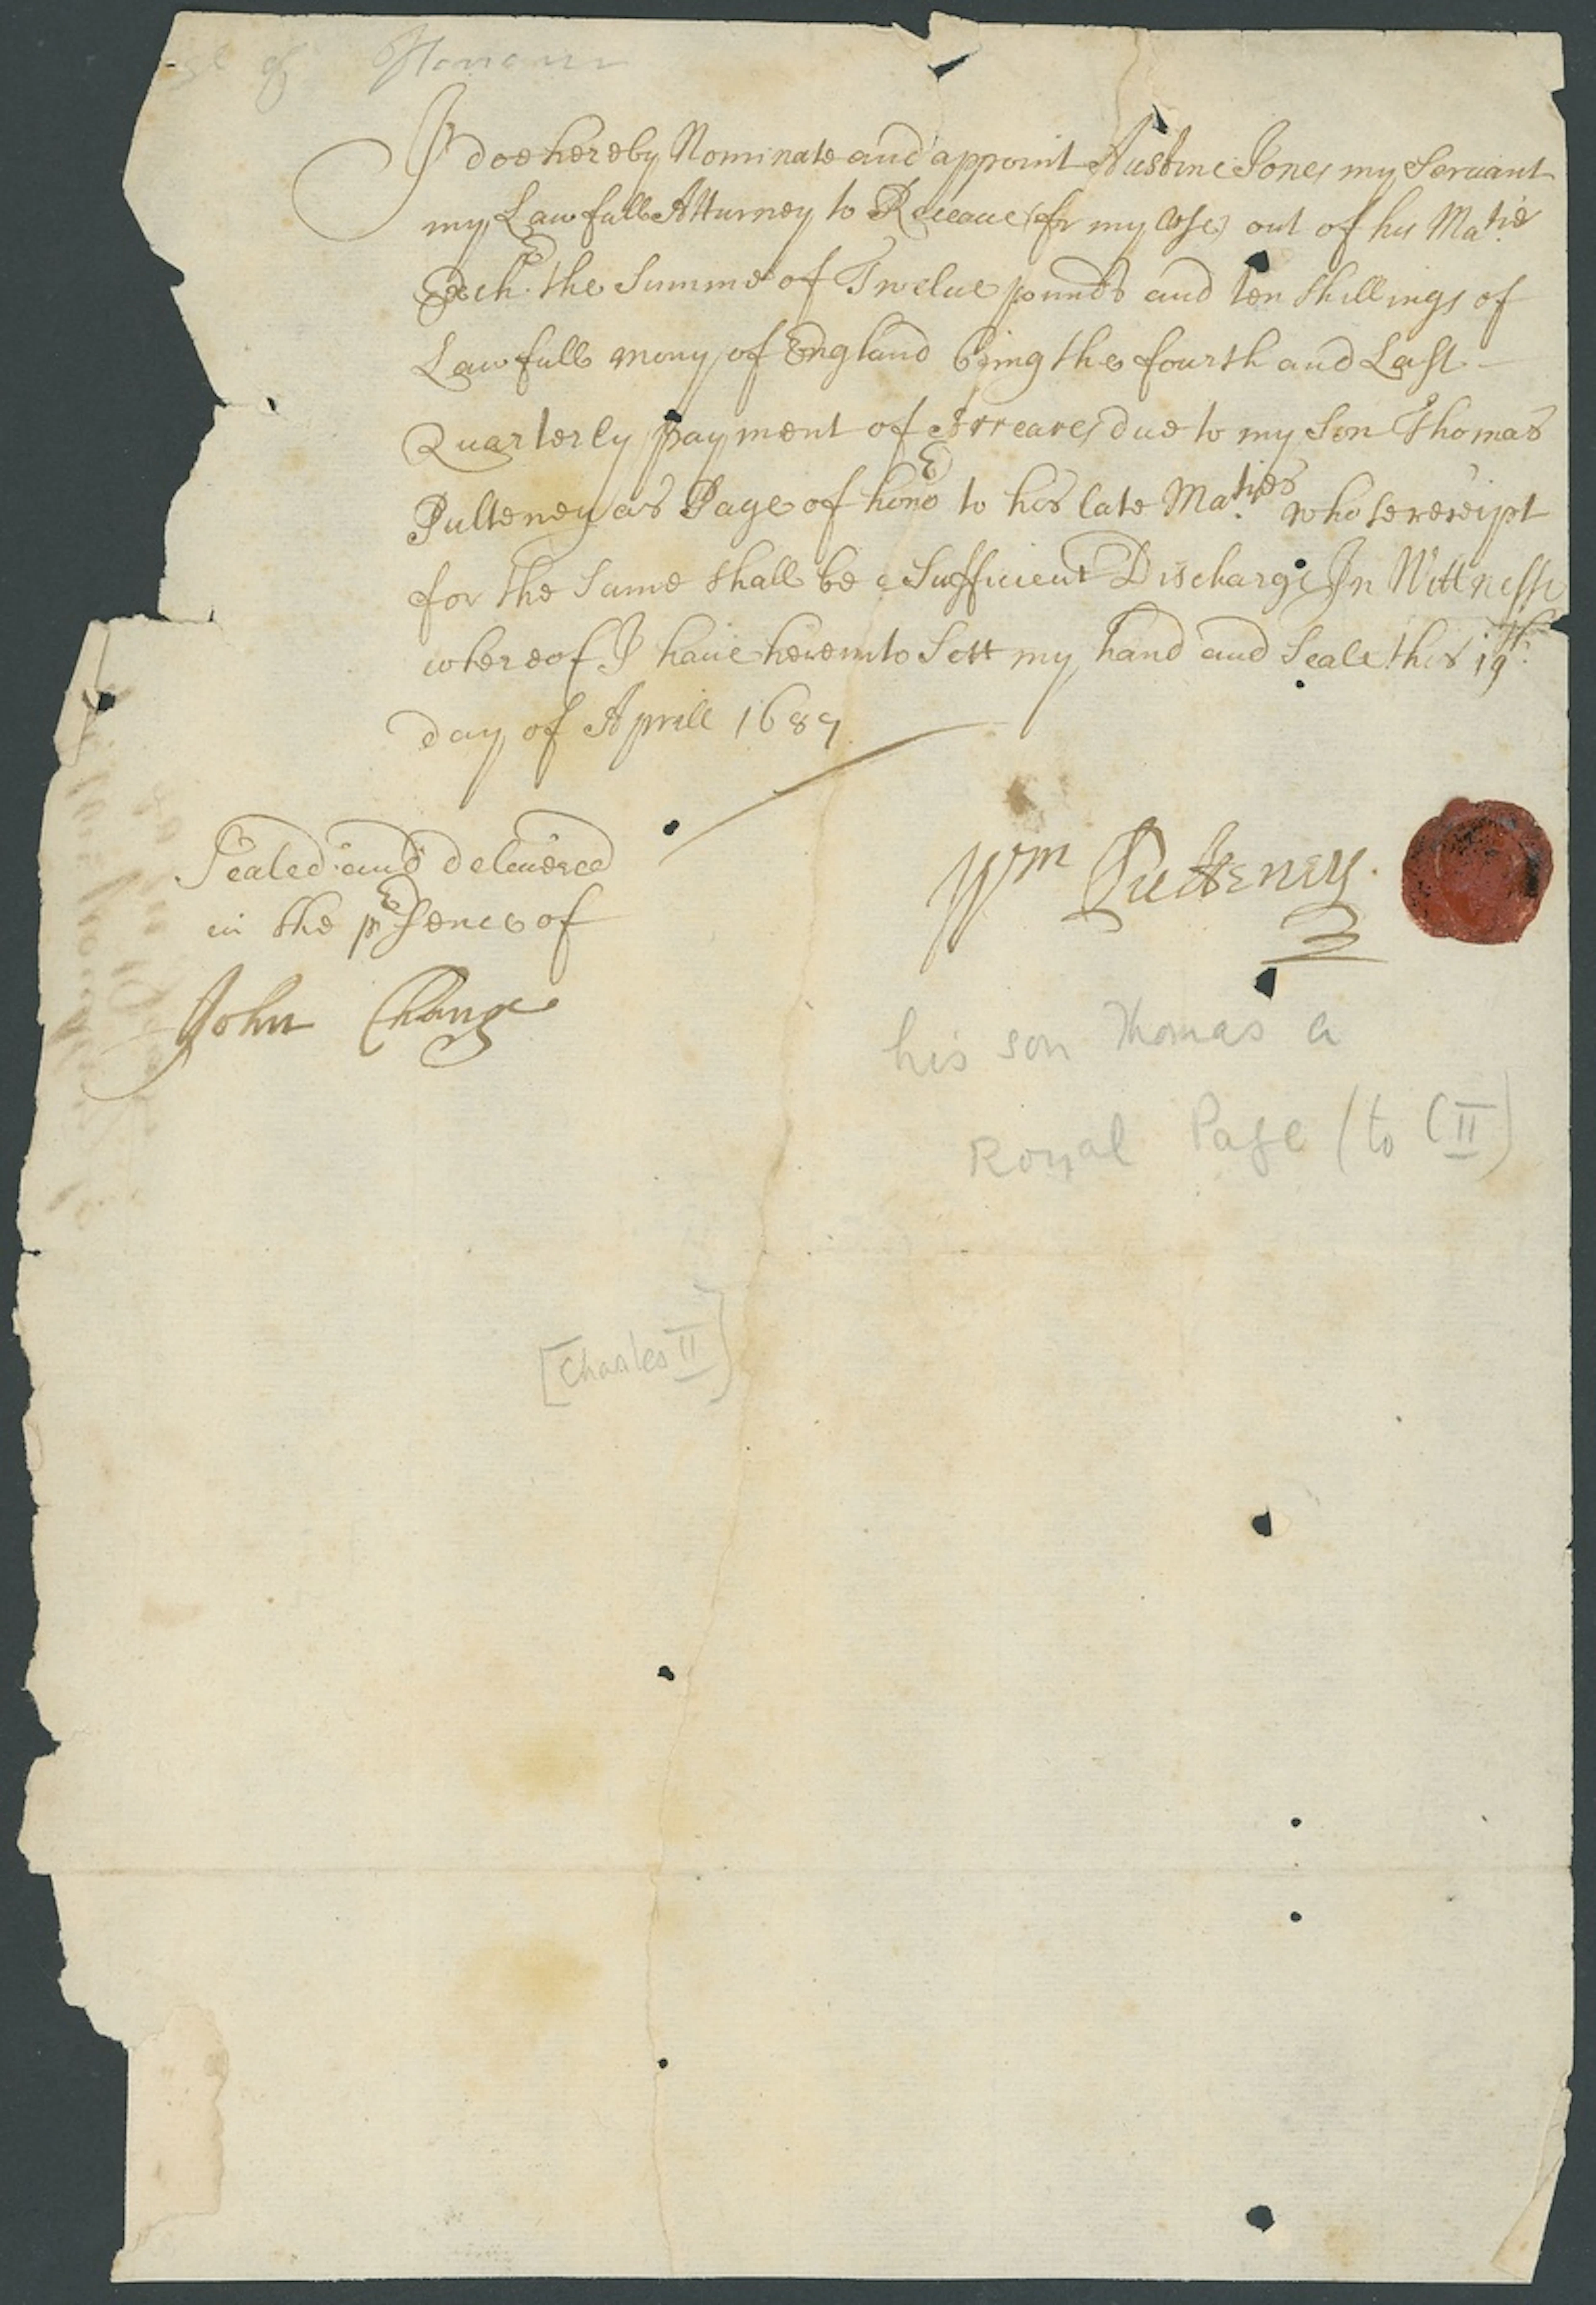 of Honour
I doe hereby Nominate and appoint Austine Jones my Servant
my Lawfull Atturney to Receaue (for my Use) out of his Matie
Exchr the Summe of Twelue pounds and ten Shillings of
Lawfull mony of England being the fourth and Last
Quarterly payment of Arreares due to my Son Thomas
Pulteney as Page of honor to his late Maties whose receipt
for the Same shall be a Sufficient Discharge In Wittnesse
whereof I haue hereunto Sett my hand and Seale this 19th
day of Aprill 1689
Sealed and deliuered
in the prsence of
Wm Pulteney.
John
his son Thomas a
Royal Page (to CII)
[Charles II]